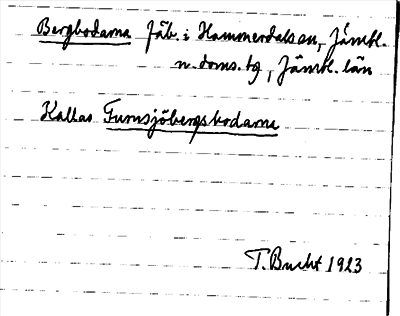 Bergbodarna Fäb. i Hammerdals sn, Jämtl.
n. doms. tg, Jämtl. län
Kallas Fumsjöbergsbodarna
T. Bucht 1923